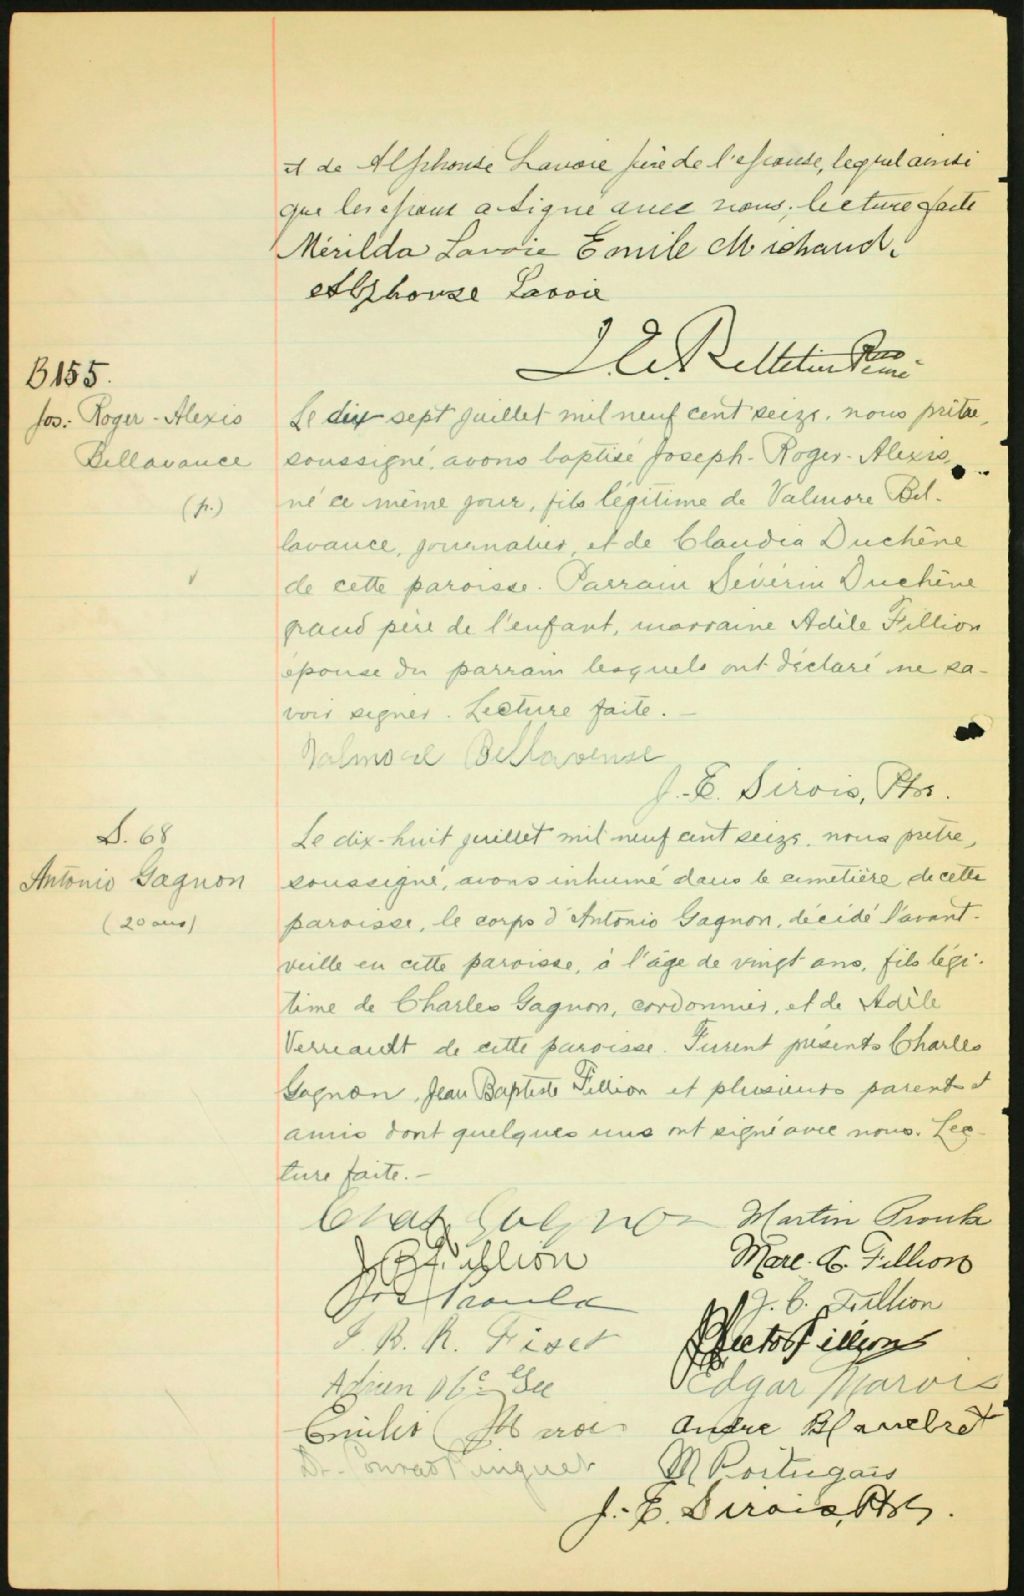 et de Alphonse Lavoie père de l'épouse, lequel ainsi
que les époux a signé avec nous; lecture faite
Mérilda Lavoie Emile Michaud.
Alphonse Lavoie
J. E. Pelletier Ptre Curé
B155.
Jos.- Roger-Alexis
Bellavance
(p.)
Le dix sept juillet mil neuf cent seize, nous prêtre,
soussigné, avons baptisé Joseph-Roger-Alexis,
né ce même jour, fils légitime de Valmore Bel-
lavance, journalier, et de Claudia Duchêne
de cette paroisse. Parrain Sévérin Duchêne
grand père de l'enfant, marraine Adèle Fillion
épouse du parrain lesquels ont déclaré ne sa-
voir signer. Lecture faite. -
Valmore Bellavense
J.-E. Sirois, Ptre.
S. 68
Antonio Gagnon
(20 ans)
Le dix-huit juillet mil neuf cent seize, nous prêtre,
soussigné, avons inhumé dans le cimetière de cette
paroisse, le corps d'Antonio Gagnon, décidé l'avant-
veille en cette paroisse, à l'âge de vingt ans, fils légi-
time de Charles Gagnon, cordonnier, et de Adèle
Verreault de cette paroisse. Furent présents Charles
Gagnon, Jean Baptiste Fillion et plusieurs parents et
amis dont quelques uns ont signé avec nous. Lec-
ture faite. -
Chas Gagnon Martin Proulx
J B Fillion Marc. A. Fillion
Jos Proulx J. C. Fillion
J. B. R. Fiset Hector Fillion
Adrien Edgar Marois
Emilio Marois André Blanchet
Dr. Conrad Pinguet M Portugais
J.-E. Sirois, Ptre.